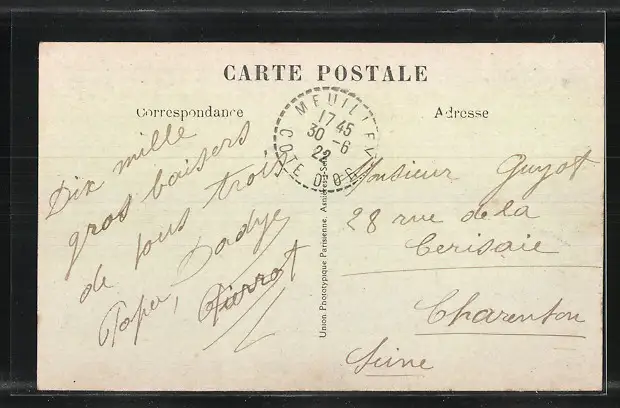 CARTE POSTALE
Correspondance
Adresse
MEUILLEY
1745
30-6
22
COTE D'OR
Dix mille
gros baisers
de tous trois
Papa, Dadye,
Pierrot
Union Phototypique Parisienne, Asnières-Seine
Monsieur Guyot
28 rue de la
Cerisaie
Charenton
Seine